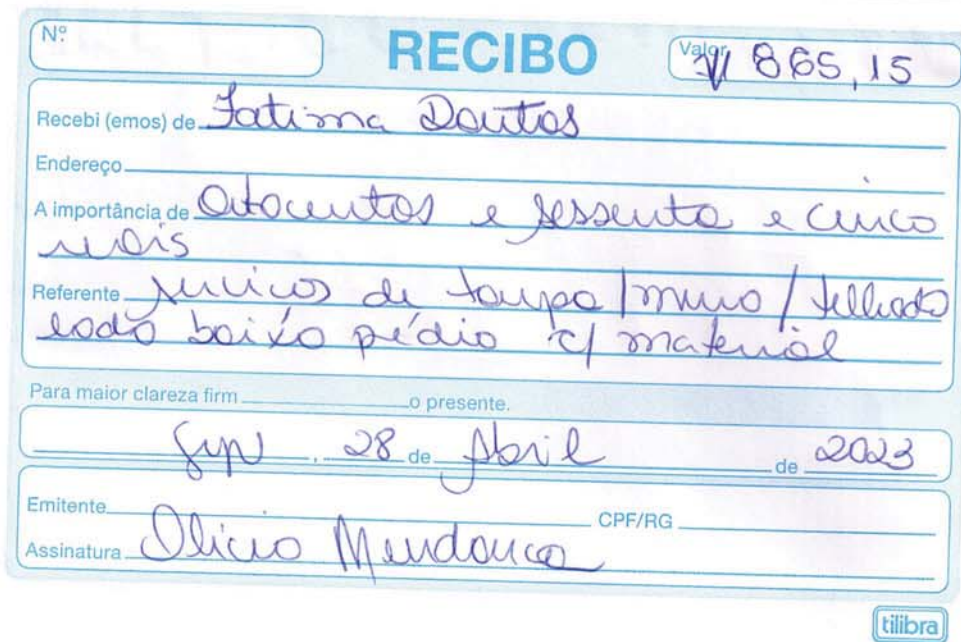 Nº
RECIBO
Valor 865,15
Recebi (emos) de Fatima Doutos
Endereço
A importância de Oitocentos e sessenta e cinco
reais
Referente serviços de /muro/telhado
lado baixo prédio c/ material
Para maior clareza firm o presente.
, 28 de Abril de 2023
Emitente CPF/RG
Assinatura Olicio Mendonça
tilibra